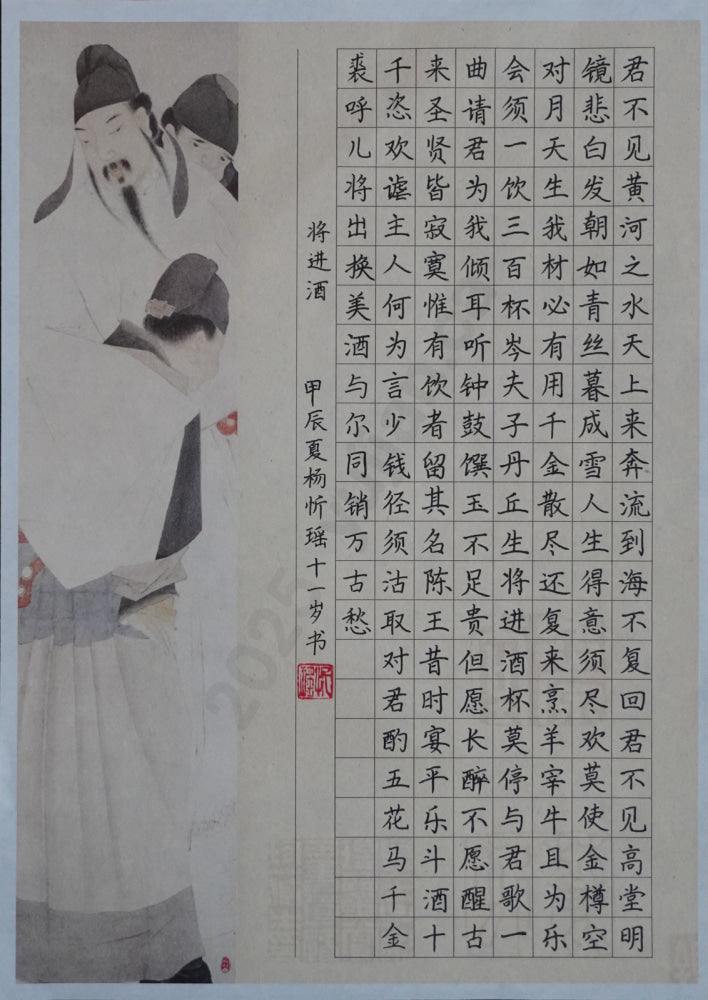 君不见黄河之水天上来奔流到海不复回君不见高堂明
镜悲白发朝如青丝暮成雪人生得意须尽欢莫使金樽空
对月天生我材必有用千金散尽还复来烹羊宰牛且为乐
会须一饮三百杯岑夫子丹丘生将进酒杯莫停与君歌一
曲请君为我倾耳听钟鼓馔玉不足贵但愿长醉不愿醒古
来圣贤皆寂寞惟有饮者留其名陈王昔时宴平乐斗酒十
千恣欢谑主人何为言少钱径须沽取对君酌五花马千金
裘呼儿将出换美酒与尔同销万古愁
将进酒 甲辰夏杨忻瑶十一岁书
2025